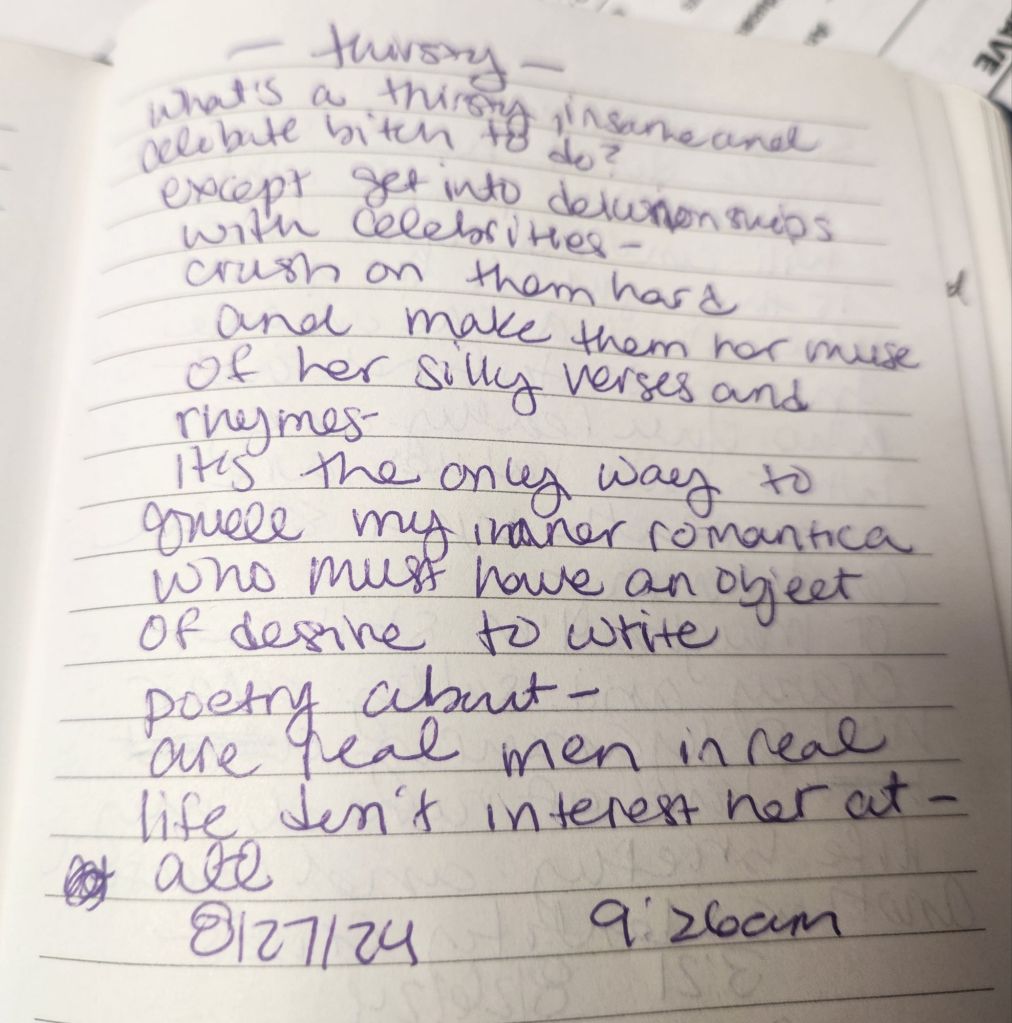 - thirsty -
what's a thirsty, insane and
celebate bitch to do?
except get into delusionships
with celebrities-
crush on them hard
and make them her muse
of her silly verses and
rhymes-
it's the only way to
quell my inner romantica
who must have an object
of desire to write
poetry about-
are real men in real
life don't interest her at-
all
8/27/24 9:26am